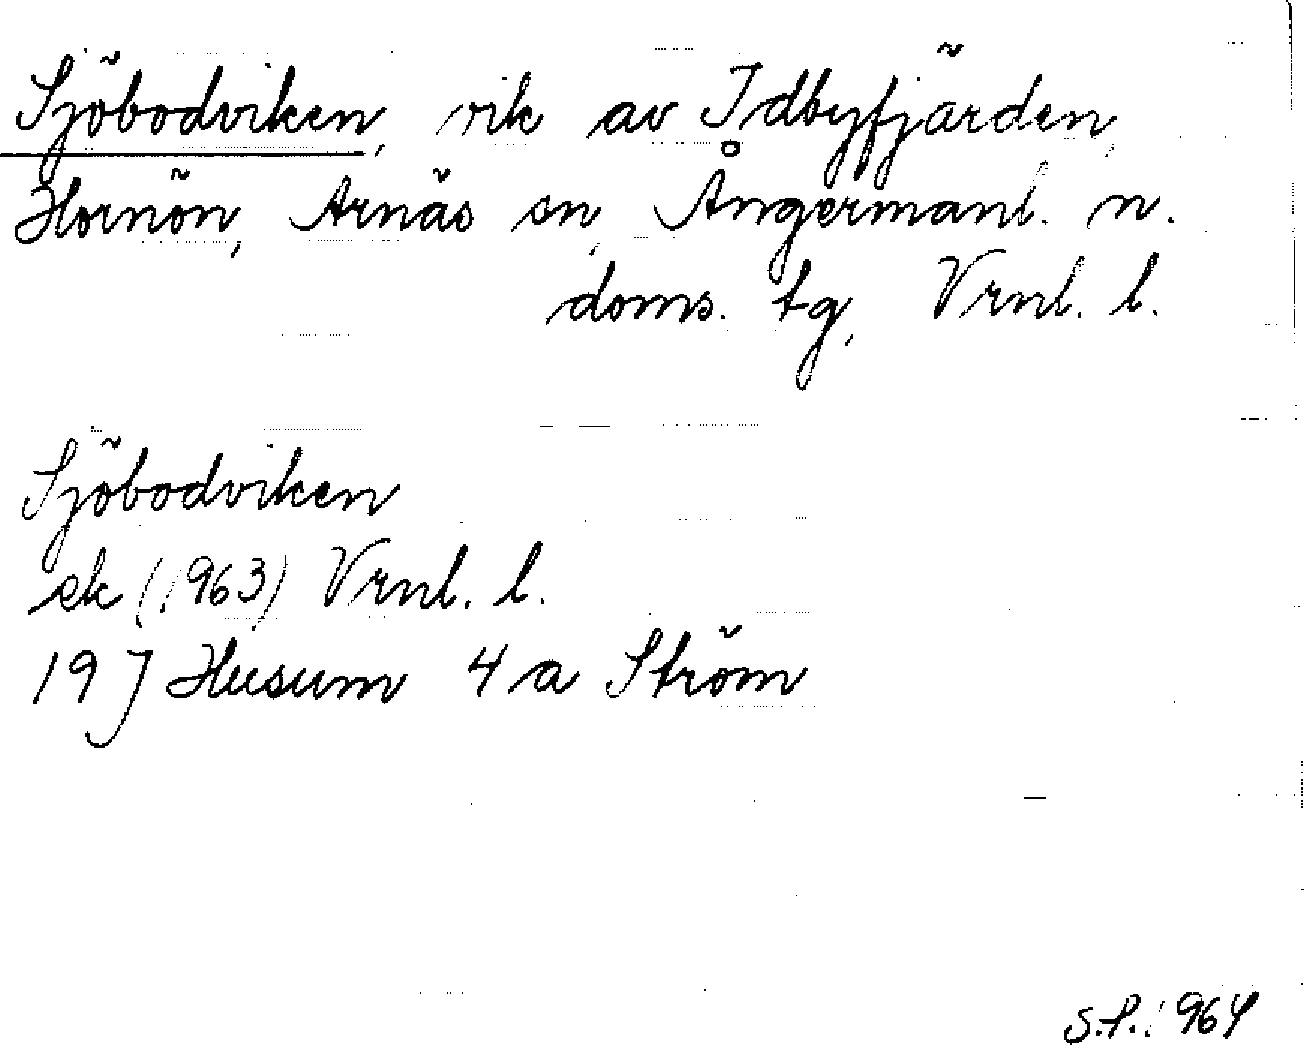 Sjöbodviken, vik av Idbyfjärden,
Hornön, Arnäs sn, Ångermanl. n.
doms. tg, Vrnl. l.
Sjöbodviken
ek (1963) Vrnl. l.
19 J Husum 4 a Ström
S.P. 1964